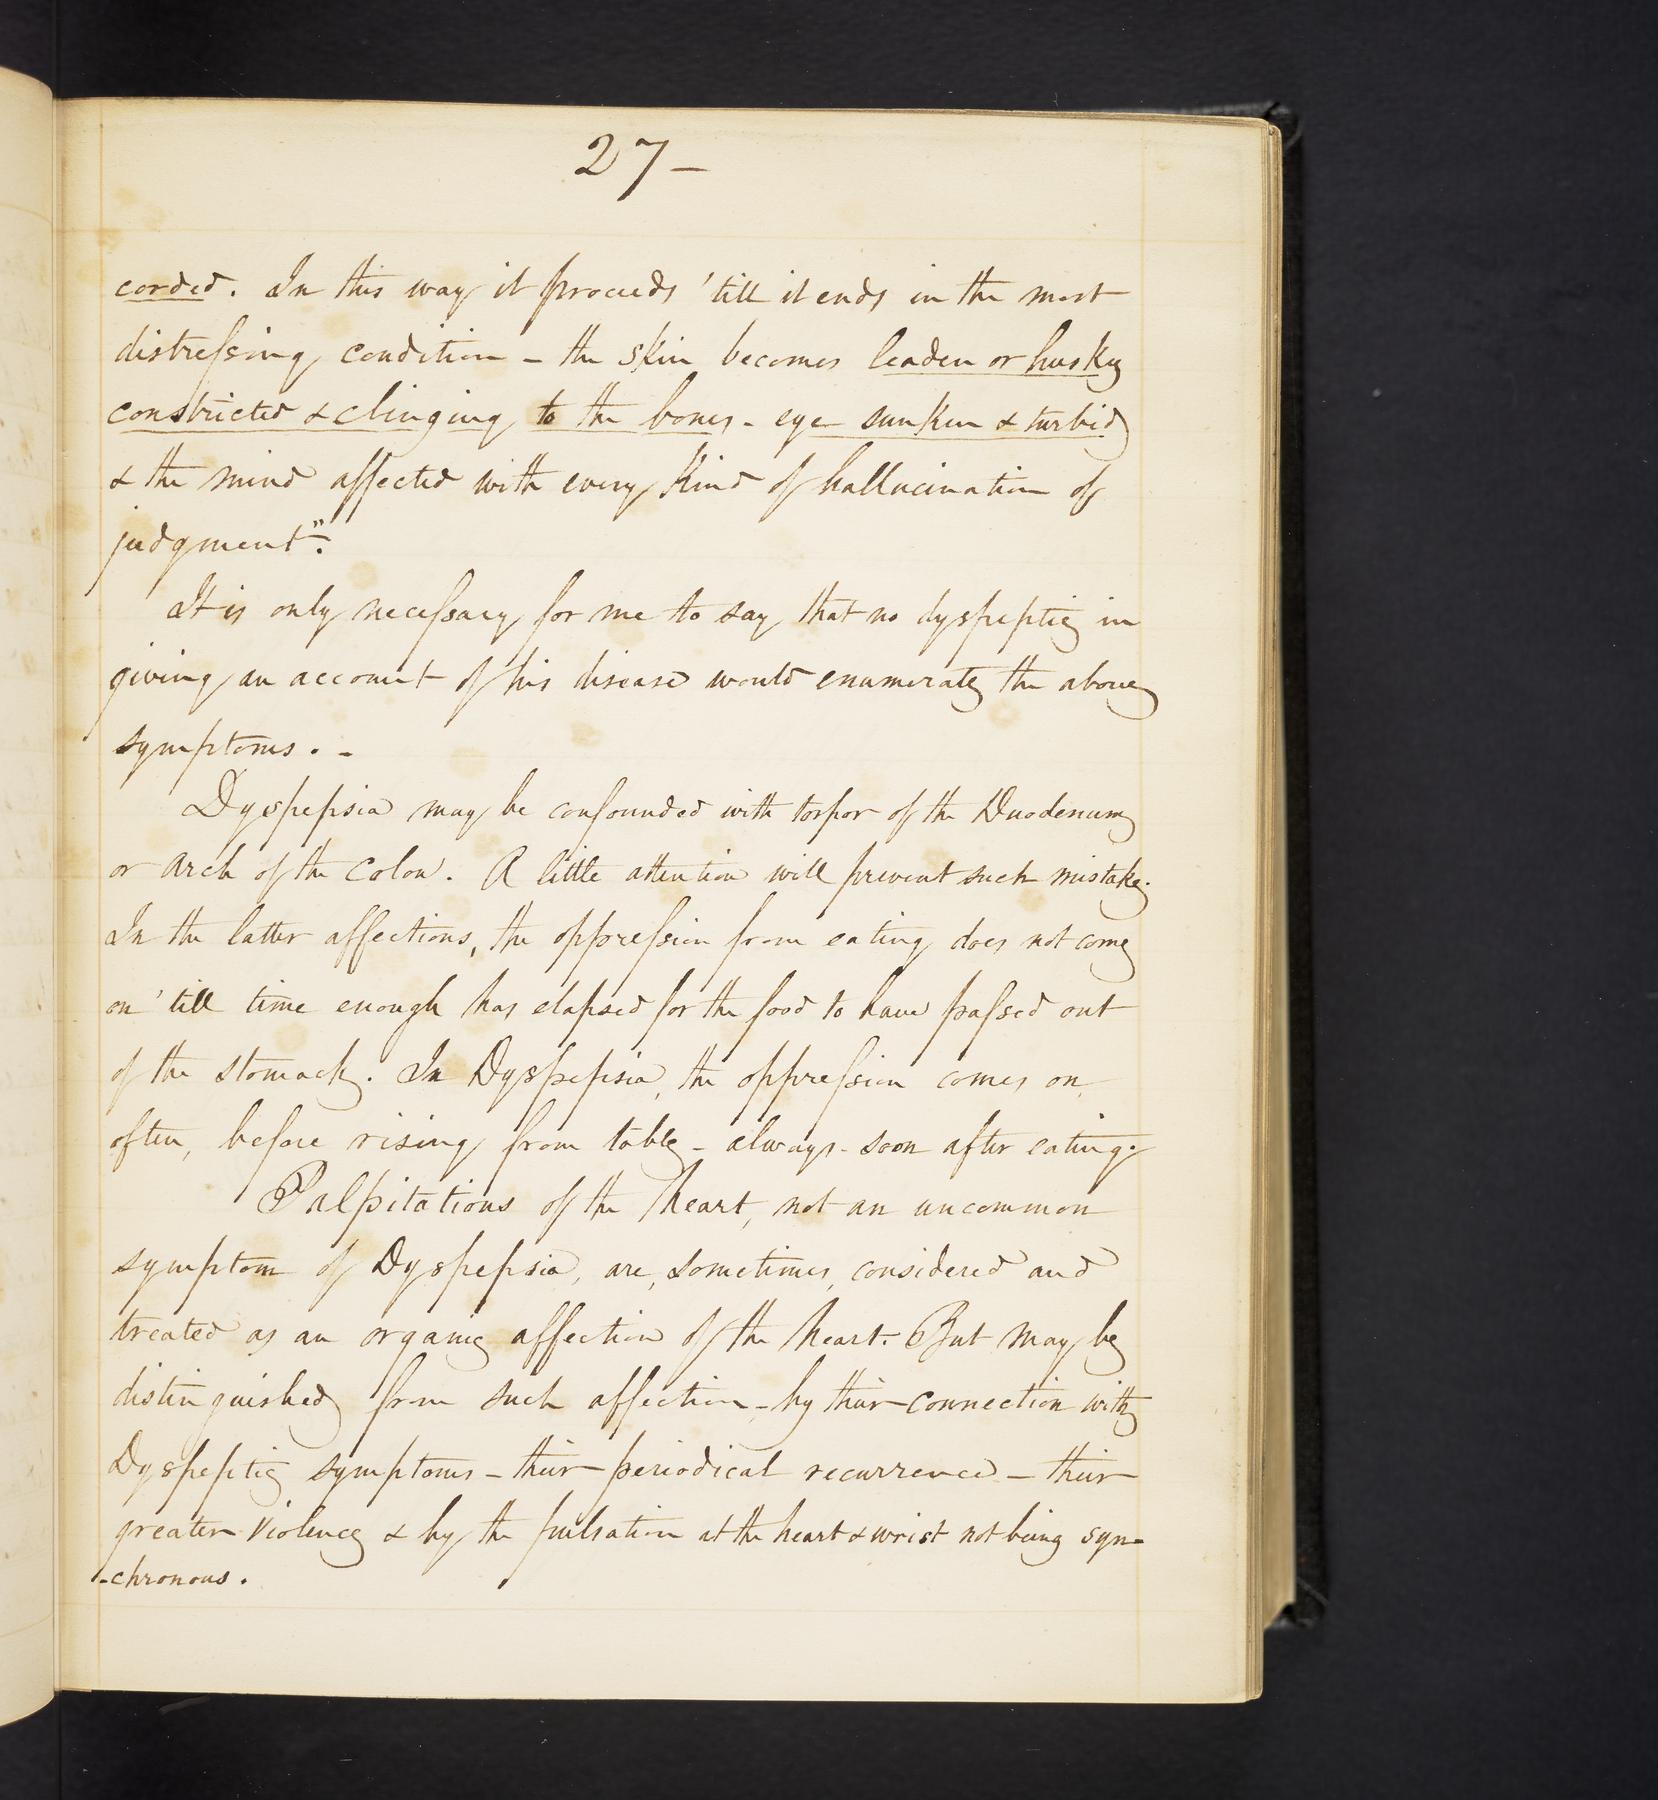 27-
corded. In this way it proceeds 'till it ends in the most
distressing condition - the skin becomes leaden or husky
constricted & clinging to the bones - eye sunken & turbid
& the mind affected with every kind of hallucination of
judgment".
It is only necessary for me to say that no dyspeptic in
giving an account of his disease would enumerate the above
symptoms. -
Dyspepsia may be confounded with torpor of the Duodenum
or arch of the colon. A little attention will prevent such mistake.
In the latter affections, the oppression from eating does not come
on 'till time enough has elapsed for the food to have passed out
of the stomach. In Dyspepsia, the oppression comes on,
often, before rising from table - always - soon after eating.
Palpitations of the heart, not an uncommon
symptom of Dyspepsia, are, sometimes, considered and
treated as an organic affection of the heart. But may be
distinguished from such affection - by their connection with
Dyspeptic symptoms - their periodical recurrence - their
greater violence & by the pulsation at the heart & wrist not being syn=
-chronous.